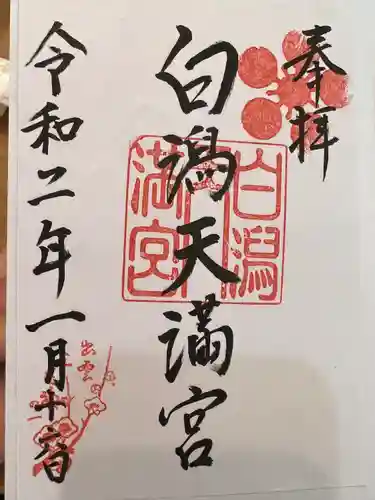 奉拝
白潟天満宮
白潟
天満宮
令和二年一月十六日
出雲